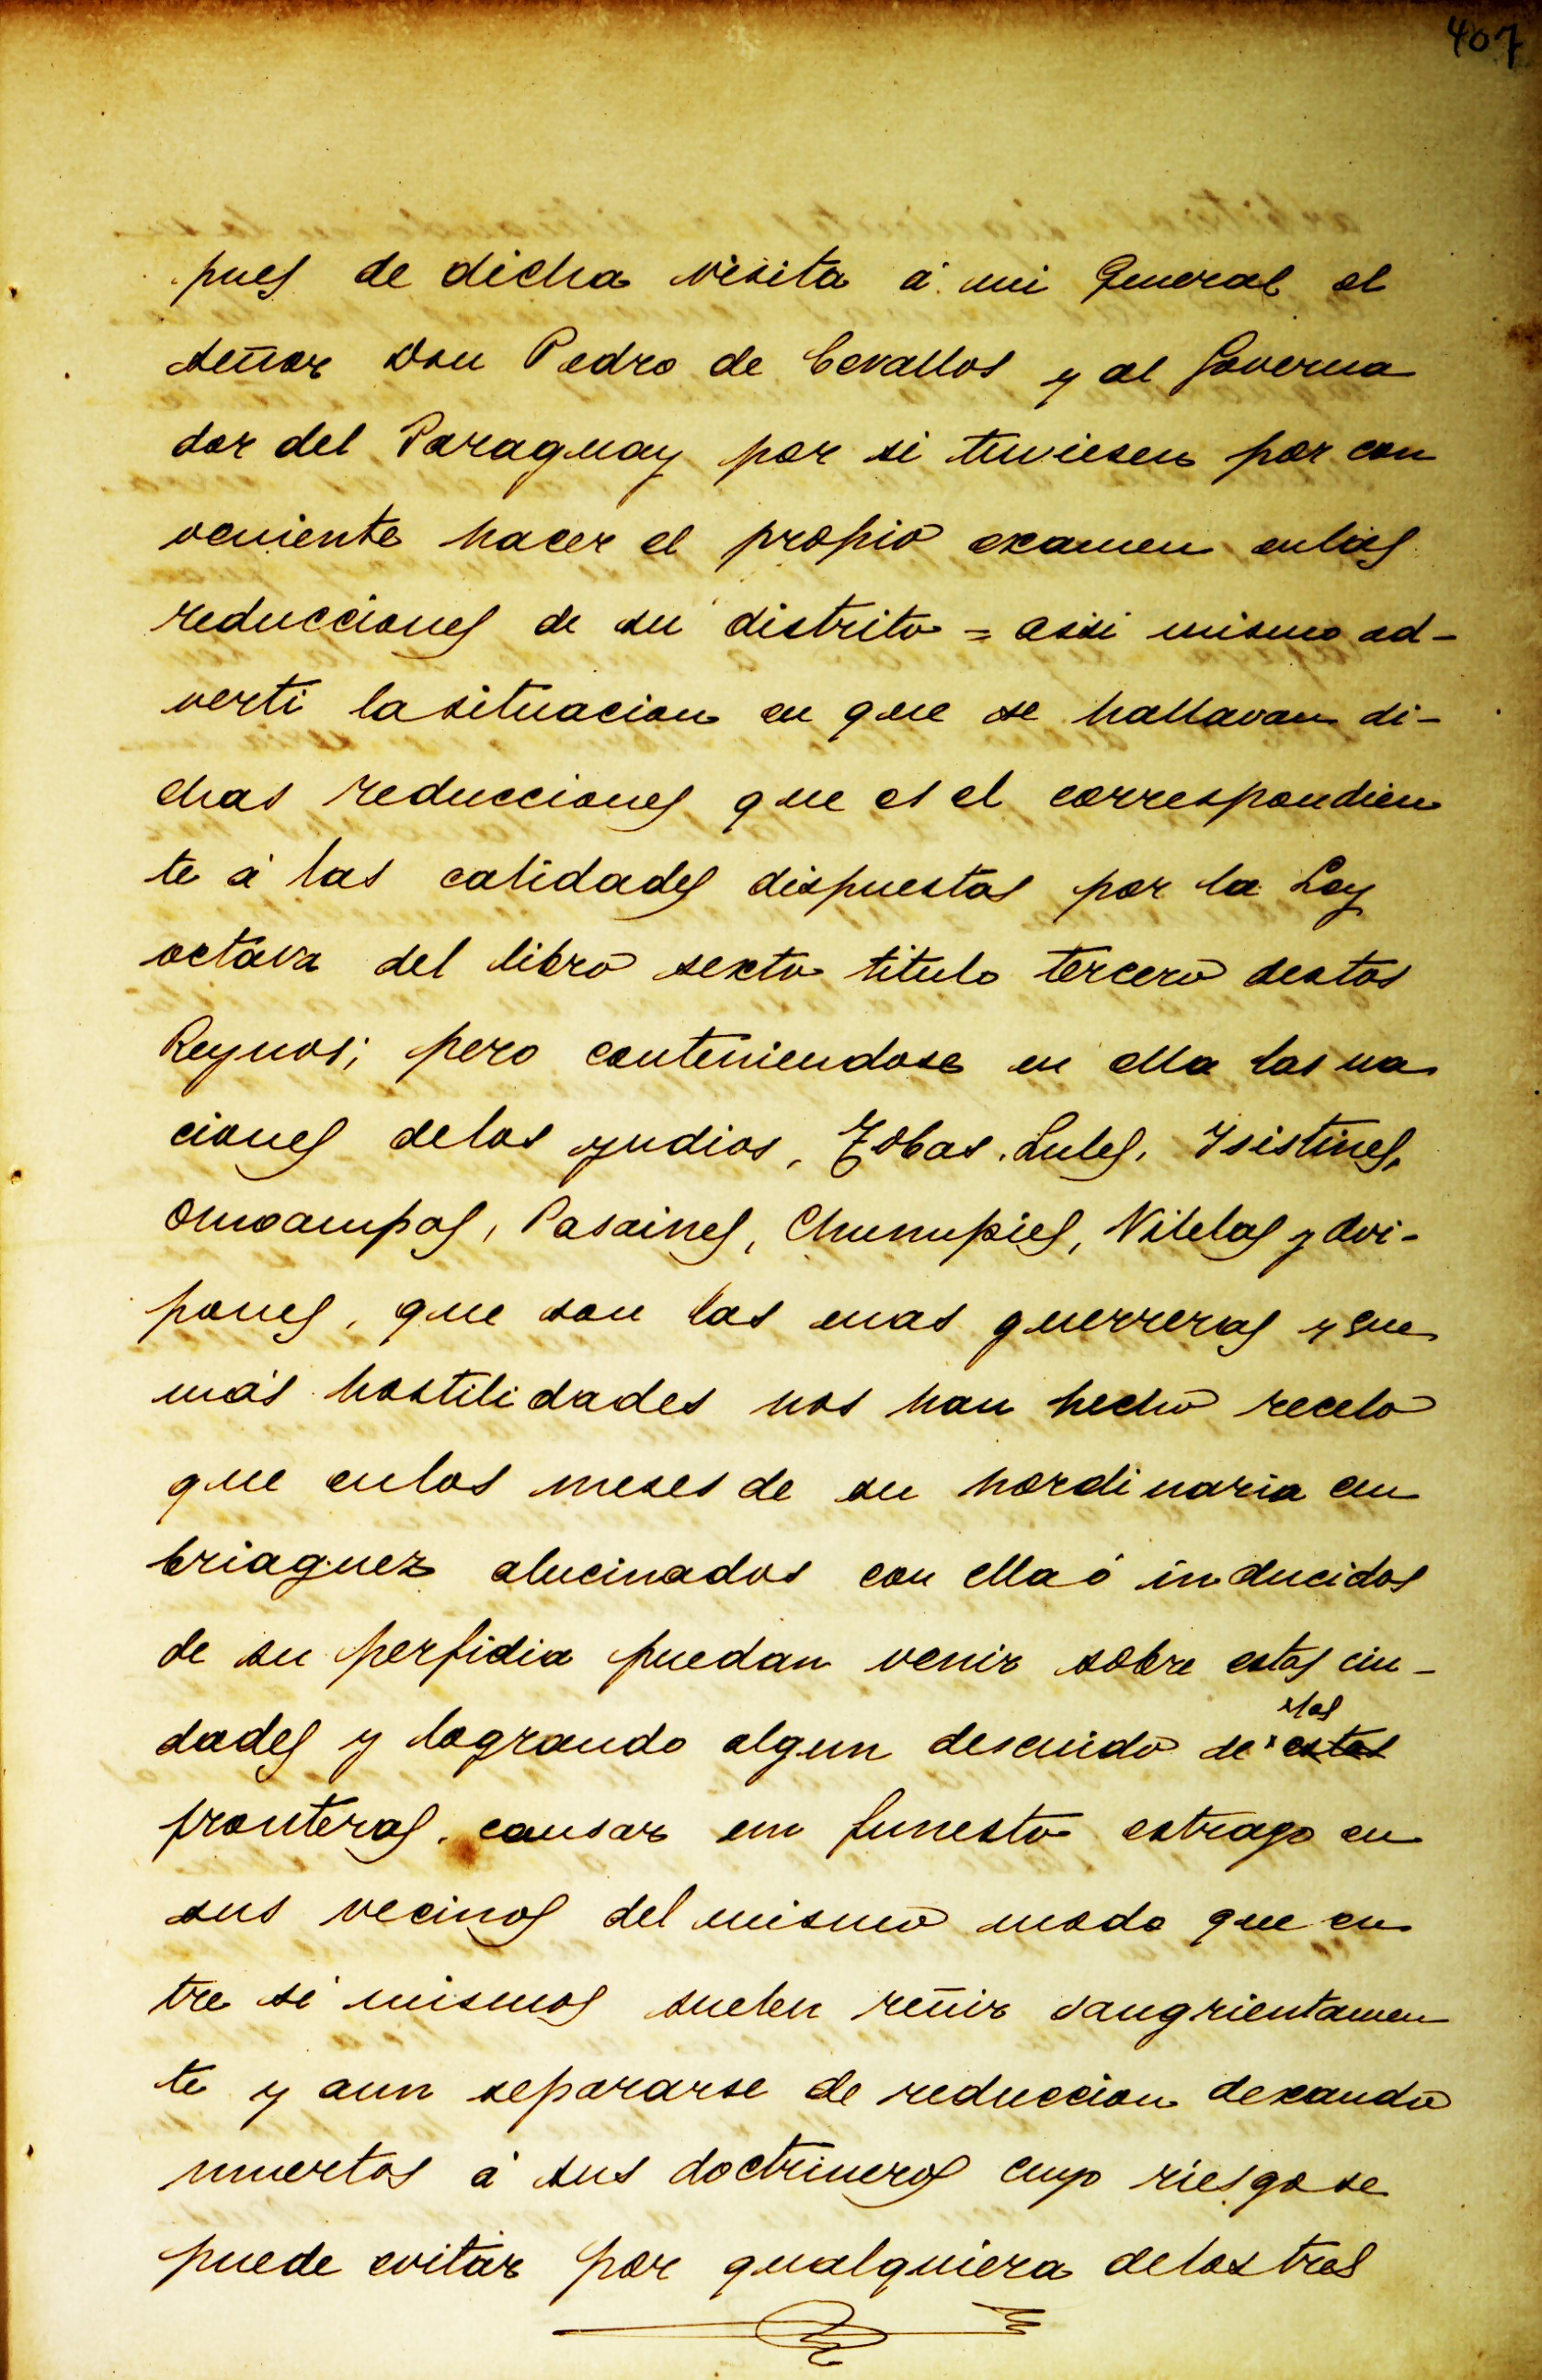 407
pues de dicha visita á mi General el
señor Don Pedro de Cevallos y al Governa
dor del Paraguay por si tuviesen por con
veniente hacer el propio examen enlas
reducciones de su distrito = assi mismo ad-
verti la situacion en que se hallavan di-
chas reducciones que es el correspondien
te á las calidades dispuestas por la Ley
octava del libro sexto titulo tercero destos
Reynos; pero conteniendose en ella las na
ciones delos yndios, Tobas, Lules, Ysistines,
Omoampas, Pasaines, Chunupies, Vilelas y Avi-
pones, que son las mas guerreras y que
más hostilidades nos han hecho recelo
que enlos meses de su hordinaria em
briaguez alucinados con ella ó inducidos
de su perfidia puedan venir sobre estas ciu-
dades y logrando algun descuido de estas
slas
fronteras, causar un funesto estrago en
sus vecinos del mismo modo que en
tre si mismos suelen reñir sangrientamen
te y aun separarse de reduccion dexando
muertos á sus doctrineros cuyo riesgo se
puede evitar por qualquiera delos tres